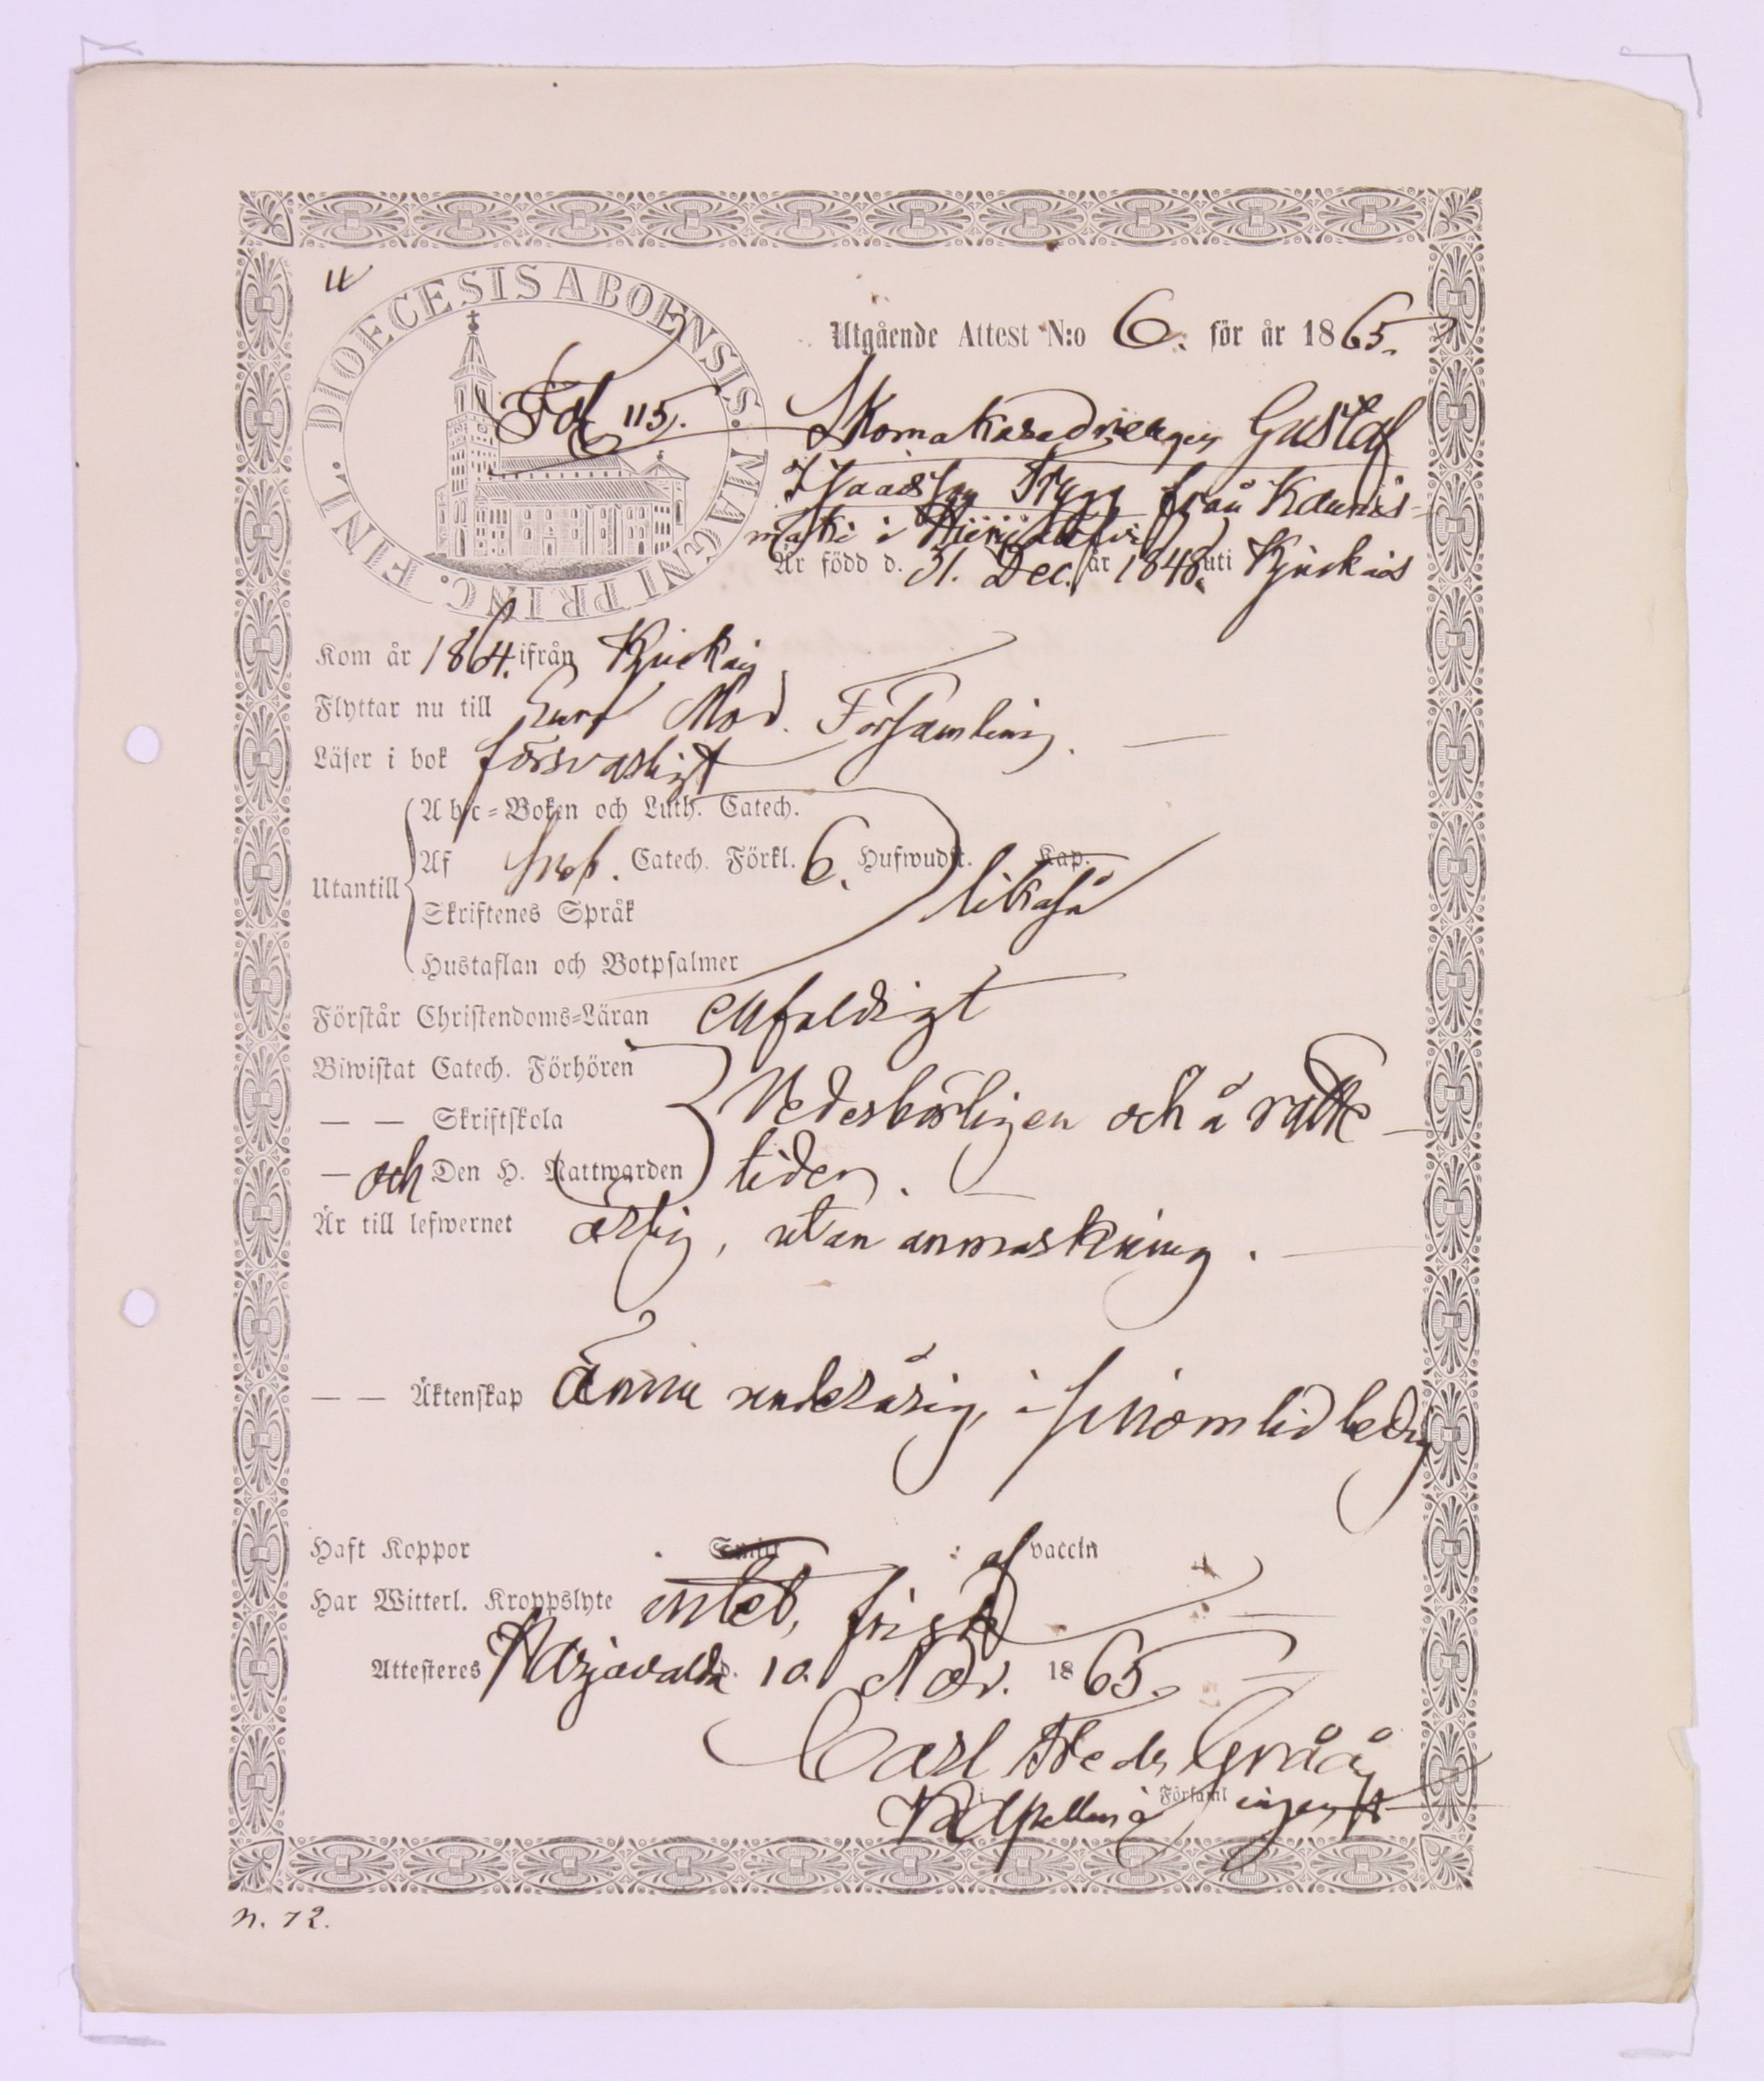 4
DIOECESIS ABOENSIS. MAGNI PRINC. FINL.
Utgående Attest N:o 6. för år 1865.
Fol. 115.
Skomakaredrengen Gustaf
Isaacsson Trygg från Kaunis-
maki i
Är född d. 31. Dec. år 1848. uti Kjuckais
Kom år 1864. ifrån Kjuckais
Flyttar nu till Eura Mod. Församling.
Läser i bok försvarligt
Abc-Boken och Luth. Catech.
Af Sveb. Catech. Förkl. 6. Hufwudst. Kap.
Utantill
likaså
Skriftenes Språk
Hustaflan och Botpsalmer
Förstår Christendoms-Läran enfaldigt
Biwistat Catech. Förhören
— — Skriftskola
Vederbörligen och å rätta
— och Den H. Nattwarden tider.
Är till lefwernet ärlig, utan anmärkning.
— — Äktenskap ännu underårig, i
Haft Koppor af vaccin
Har Witterl. Kroppslyte intet, frisk
Attesteres Harjavalda d. 10. Nov. 1865.
Carl Fredr Gråå
Kapellan i Församlingen
N. 72.